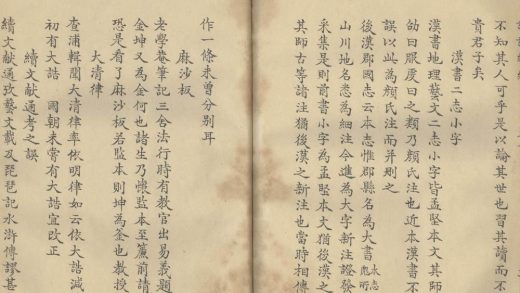 不知其人可乎是以論其世也習其讀而不
貴君子矣
漢書二志小字
漢書地理藝文二志小字皆孟堅本文其師
劭曰服虔曰之類乃顏氏注也近本漢書不
誤以此為顏氏注而并刪之
後漢郡國志云本志惟郡縣名為大書本志
山川地名悉為細注今進為大字新注證發
采集是則前書小字為孟堅本文猶後漢之
其師古等諸注猶後漢之新注也當時相傳
作一條未曾分別耳
麻沙板
老學菴筆記三舍法行時有教官出易義題
金坤又為金何也諸生乃懷監本至簾前請
恐是看了麻沙板若監本則坤為釜也教授
大清律
查浦輯聞大清律率依明律如云依大誥減
初有大誥　國朝未嘗有大誥宜改正
續文獻通考之誤
續文獻通攷藝文載及琵琶記水滸傳謬甚